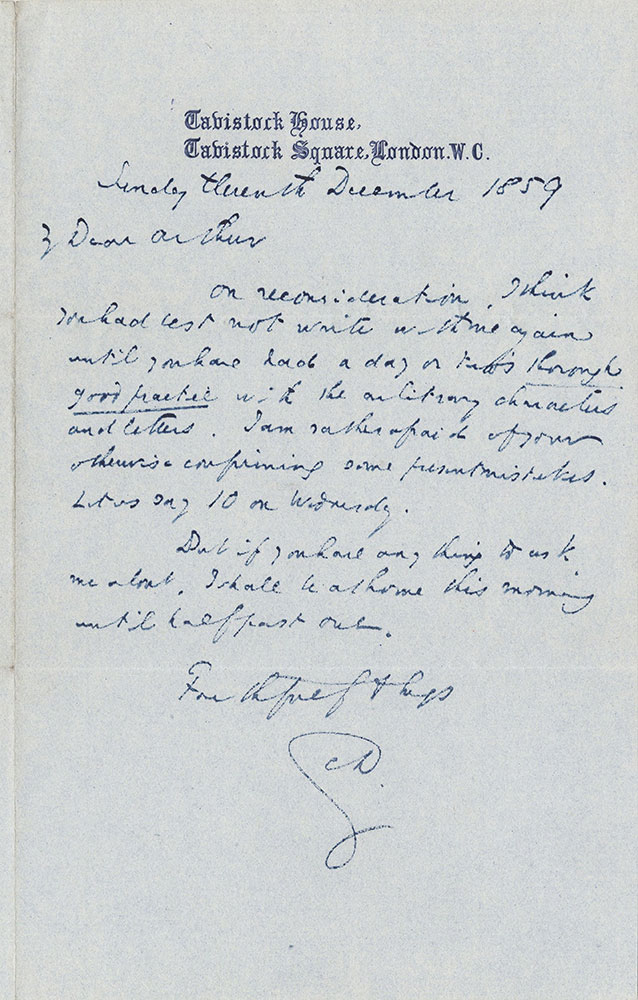 Tavistock House,
Tavistock Square, London. W.C.
Sunday Eleventh December 1859
My Dear Arthur
On reconsideration, I think
you had best not write with me again
until you have had a day or two's thorough
good practice with the arbitrary characters
and letters. I am rather afraid of your
otherwise confirming some present mistakes.
Let us say 10 on Wednesday.
But if you have any thing to ask
me about, I shall be at home this morning
until half past one.
Faithfully
CD.